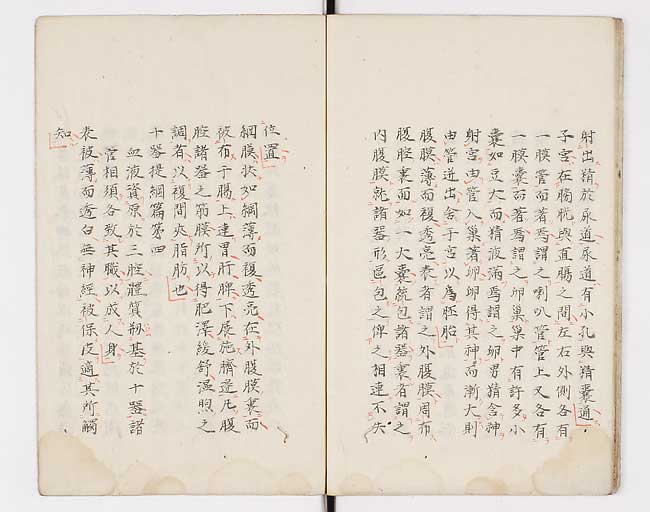 射出精於尿道尿道有小孔與精囊通
子宮在膀胱與直腸之間左右外側各有
一膜管而著焉謂之喇叭管管上又各有
一膜囊而著焉謂之卵巢巢中有許多小
囊如豆大而精液滿焉謂之卵男精含神
射宮由管入巢著卵卵得其神而漸大則
由管迸出舍于宮以為胚胎
腹膜薄而複透亮表者謂之外腹膜周布
腹腔裏面如一大囊統包諸器裏者謂之
内腹膜就諸器形區包之俾之相連不失
位置
網膜狀如網薄而複透亮在外腹膜裏而
被布于腸上連胃肝脾下廉施臍邊凡腹
腔諸器之筋膜所以得肥澤緩舒溫煦之
調者以複間夾脂肪也
十器提綱篇第四
血液資原於三腔體質剏基於十器諸
管相須各致其職以成人身
表被薄而透白無神經被保皮適其所觸
知